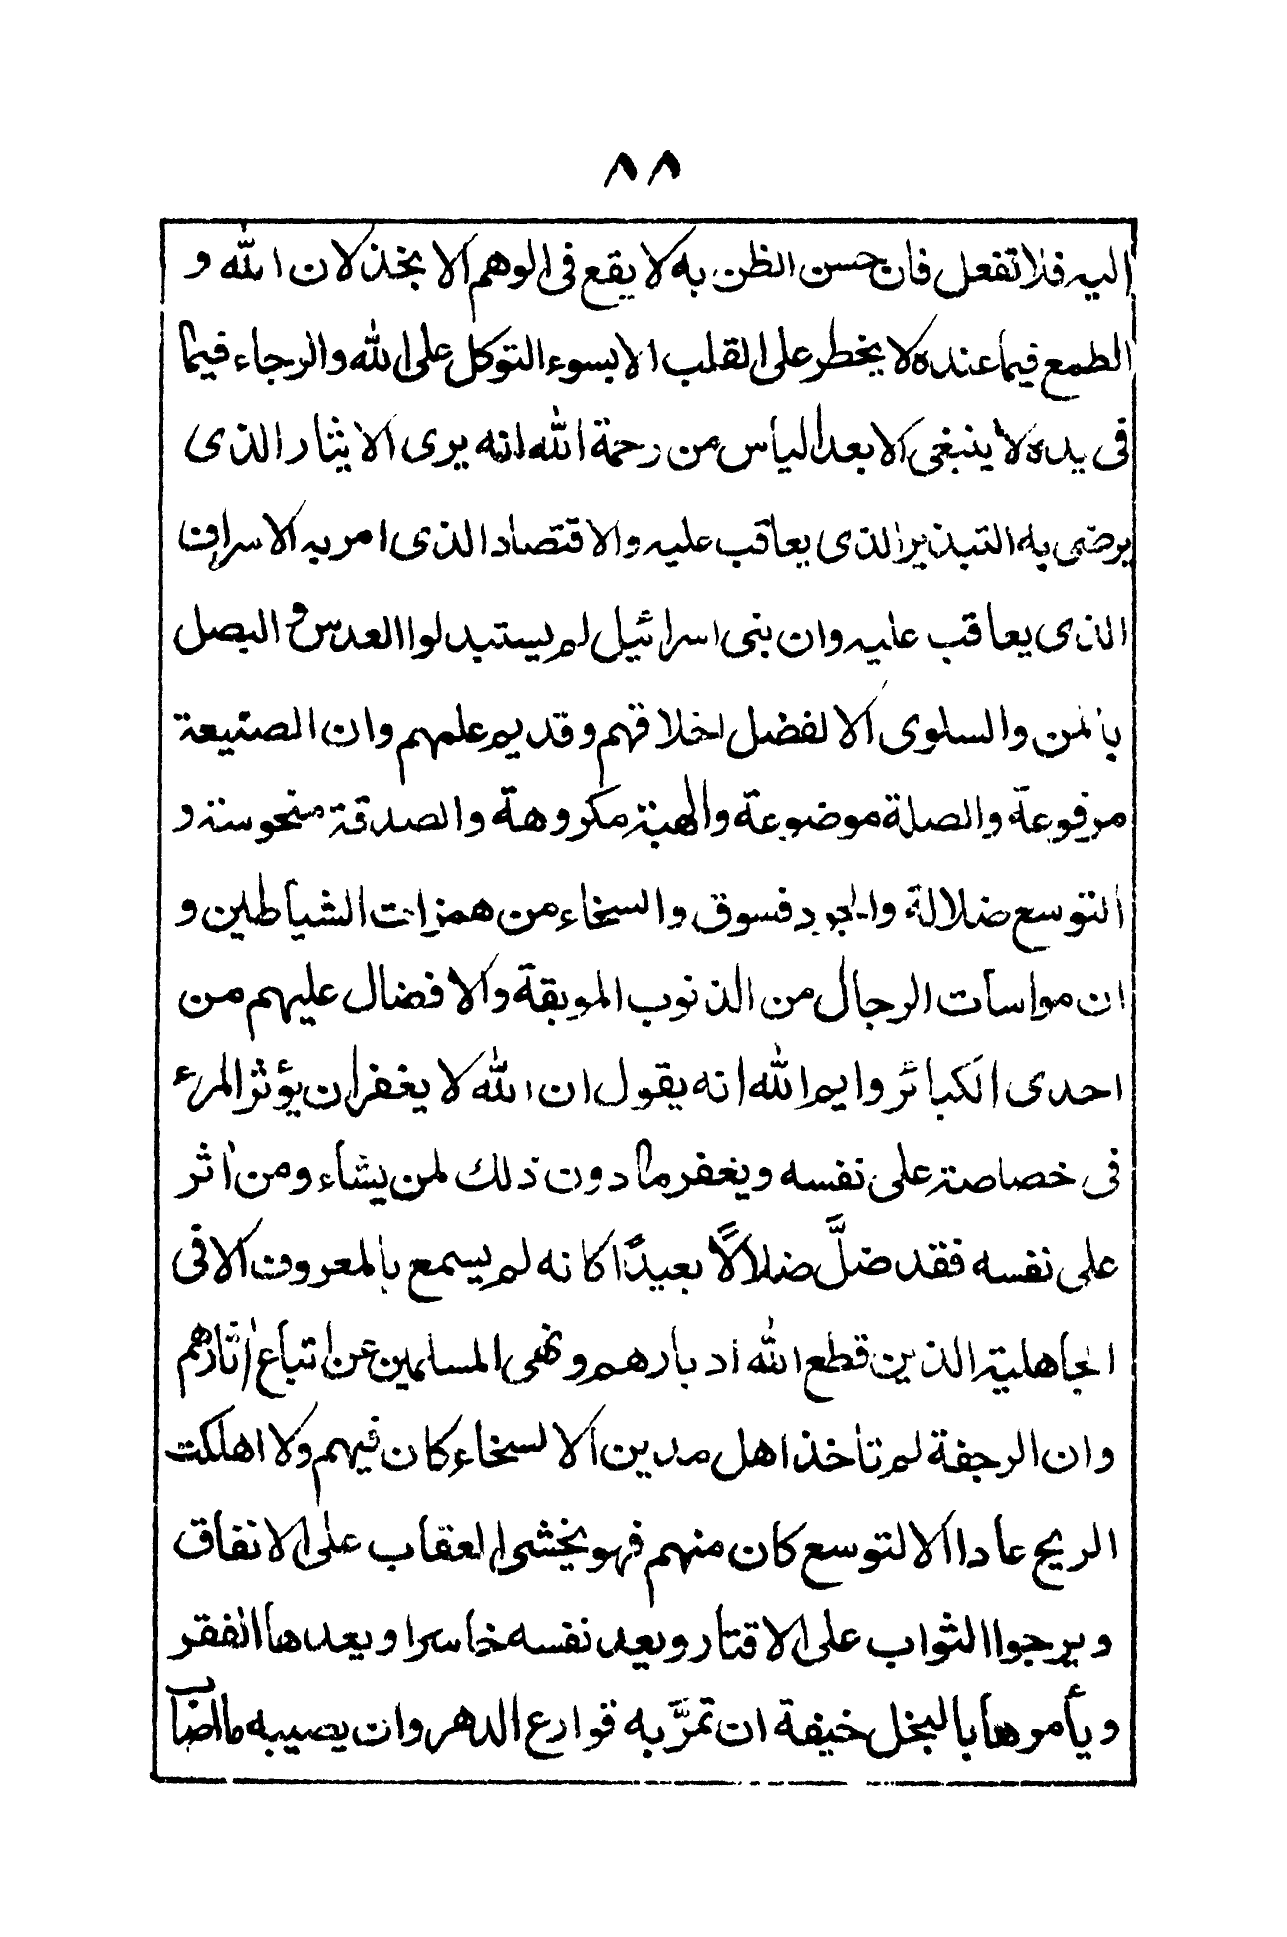 ٨٨
اليه فلا تفعل فان حسن الظن به لا يقع فى الوهم الا بخذلان الله و
الطمع فيما عنده لا يخطر على القلب الا بسوء التوكل على الله والرجاء فيما
فى يده لا ينبغى الا بعد الياس من رحمة الله انه يرى الايثار الذى
يرضى به التبذير الذى يعاقب عليه والاقتصاد الذى امر به الاسراف
الذى يعاقب عليه وان بنى اسرائيل لم يستبدلوا العدس و البصل
بالمن والسلوى الا لفضل اخلاقهم وقديم علمهم وان الصنيعة
مرفوعة والصلة موضوعة والهبة مكروهة والصدقة منحوسة و
التوسع ضلالة والجود فسوق والسخاء من همزات الشياطين و
ان مواسات الرجال من الذنوب الموبقة والافضال عليهم من
احدى الكبائر وايم الله انه يقول ان الله لا يغفر ان يؤثر المرء
فى خصاصة على نفسه ويغفر ما دون ذلك لمن يشاء ومن اثر
على نفسه فقد ضلَّ ضلالًا بعيدًا كانه لم يسمع بالمعروف الا فى
الجاهلية الذين قطع الله ادبارهم ونهى المسلمين عن اتباع اثارهم
وان الرجفة لم تاخذ اهل مدين الا لسخاء كان فيهم ولا اهلكت
الريح عادا الا لتوسع كان منهم فهو يخشى العقاب على الانفاق
ويرجوا الثواب على الاقتار ويعد نفسه خاسرا ويعدها الفقر
ويأمرها بالبخل خيفة ان تمرَّ به قوارع الدهر وان يصيبه ما اصاب